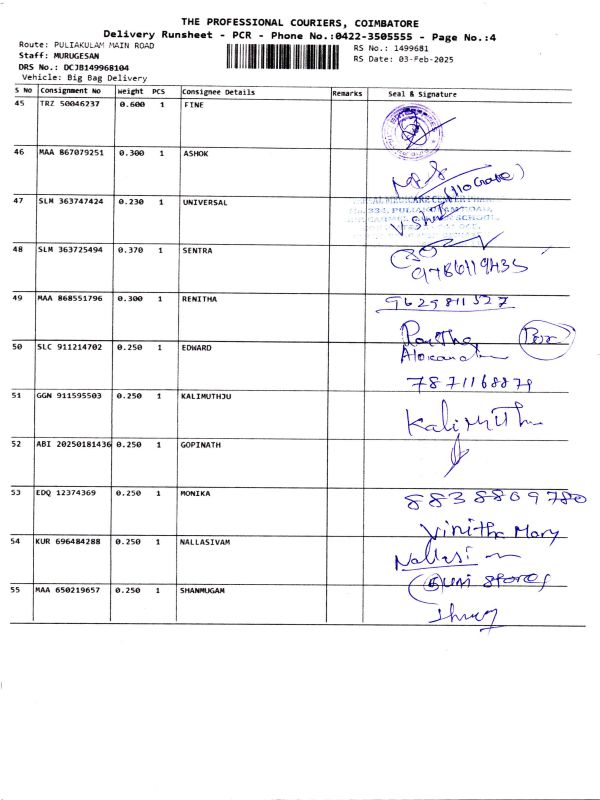 THE PROFESSIONAL COURIERS, COIMBATORE
Delivery Runsheet - PCR - Phone No.:0422-3505555 - Page No.:4
Route: PULIAKULAM MAIN ROAD
Staff: MURUGESAN
DRS No.: DCJB149968104
Vehicle: Big Bag Delivery
RS No.: 1499681
RS Date: 03-Feb-2025
S No Consignment No Weight PCS Consignee Details Remarks Seal & Signature
45 TRZ 50046237 0.600 1 FINE
46 MAA 867079251 0.300 1 ASHOK
47 SLM 363747424 0.230 1 UNIVERSAL
48 SLM 363725494 0.370 1 SENTRA
9786119435
49 MAA 868551796 0.300 1 RENITHA
9625811527
50 SLC 911214702 0.250 1 EDWARD
7871168879
51 GGN 911595503 0.250 1 KALIMUTHJU
Kalimuthu
52 ABI 20250181436 0.250 1 GOPINATH
53 EDQ 12374369 0.250 1 MONIKA
8838809780
Vinitha Mary
54 KUR 696484288 0.250 1 NALLASIVAM
Nallasi
Stores
55 MAA 650219657 0.250 1 SHANMUGAM